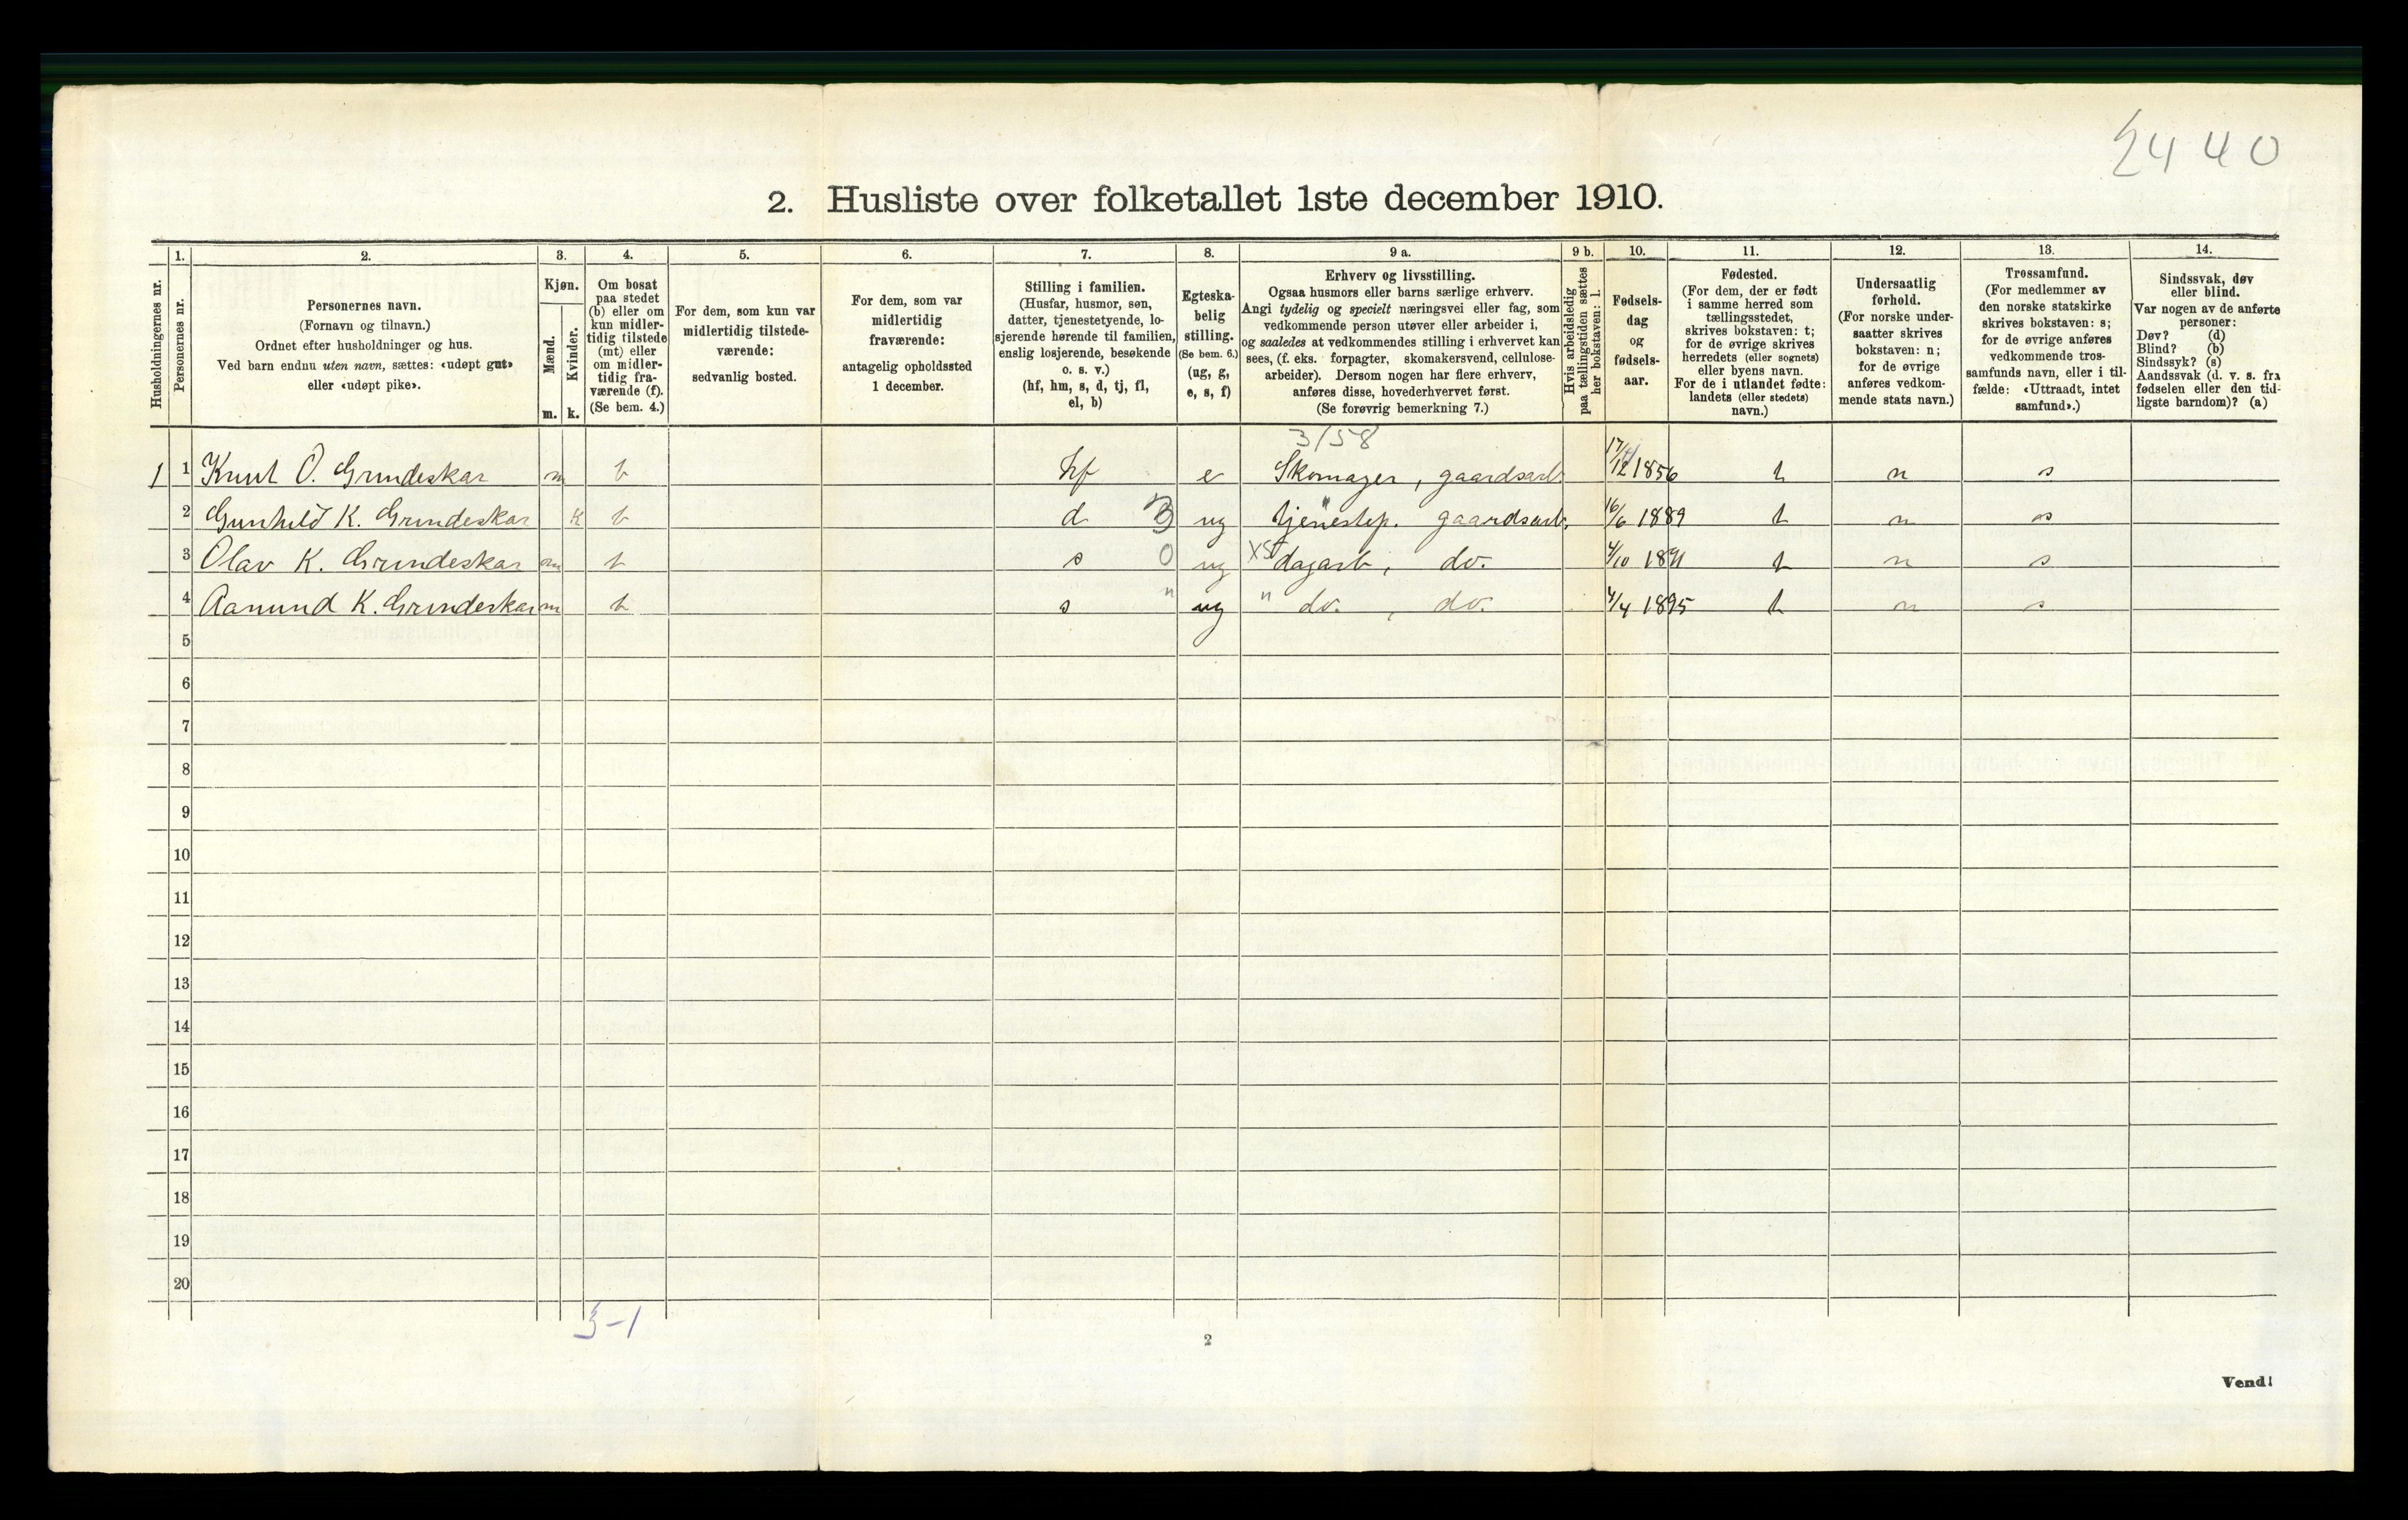 2440
2. Husliste over folketallet 1ste december 1910.
Husholdningernes nr.
1.
Personernes nr.
2.
Personernes navn.
(Fornavn og tilnavn.)
Ordnet efter husholdninger og hus.
Ved barn endnu uten navn, sættes: «udøpt gut»
eller «udøpt pike».
3.
Kjøn.
Mænd.
Kvinder.
m. k.
4.
Om bosat
paa stedet
(b) eller om
kun midler-
tidig tilstede
(mt) eller
om midler-
tidig fra-
værende (f).
(Se bem. 4.)
5.
For dem, som kun var
midlertidig tilstede-
værende:
sedvanlig bosted.
6.
For dem, som var
midlertidig
fraværende:
antagelig opholdssted
1 december.
7.
Stilling i familien.
(Husfar, husmor, søn,
datter, tjenestetyende, lo-
sjerende hørende til familien,
enslig losjerende, besøkende
o. s. v.)
(hf, hm, s, d, tj, fl,
el, b)
8.
Egteska-
belig
stilling.
(Se bem. 6.)
(ug, g,
e, s, f)
9 a.
Erhverv og livsstilling.
Ogsaa husmors eller barns særlige erhverv.
Angi tydelig og specielt næringsvei eller fag, som
vedkommende person utøver eller arbeider i,
og saaledes at vedkommendes stilling i erhvervet kan
sees, (f. eks. forpagter, skomakersvend, cellulose-
arbeider). Dersom nogen har flere erhverv,
anføres disse, hovederhvervet først.
(Se forøvrig bemerkning 7.)
9 b.
Hvis arbeidsledig
paa tællingstiden sættes
her bokstaven: l.
10.
Fødsels-
dag
og
fødsels-
aar.
11.
Fødested.
(For dem, der er født
i samme herred som
tællingsstedet,
skrives bokstaven: t;
for de øvrige skrives
herredets (eller sognets)
eller byens navn.
For de i utlandet fødte:
landets (eller stedets)
navn.)
12.
Undersaatlig
forhold.
(For norske under-
saatter skrives
bokstaven: n;
for de øvrige
anføres vedkom-
mende stats navn.)
13.
Trossamfund.
(For medlemmer av
den norske statskirke
skrives bokstaven: s;
for de øvrige anføres
vedkommende tros-
samfunds navn, eller i til-
fælde: «Uttraadt, intet
samfund».)
14.
Sindssvak, døv
eller blind.
Var nogen av de anførte
personer:
Døv? (d)
Blind? (b)
Sindssyk? (s)
Aandssvak (d. v. s. fra
fødselen eller den tid-
ligste barndom)? (a)
3/58
1 1 Knut O. Grundeskar m b hf e Skomager, gaardsarb. 17/12 1856 t n s
2 Gunhild K. Grundeskar k b d ug tjenestep. gaardsarb. 16/6 1889 t n s
3 Olav K. Grundeskar m b s 0 ug dagarb, do. 4/10 1891 t n s
4 Aanund K. Grundeskar m b s " ug " do. , do. 4/4 1895 t n s
5
6
7
8
9
10
11
12
13
14
15
16
17
18
19
20
3-1
2
Vend!